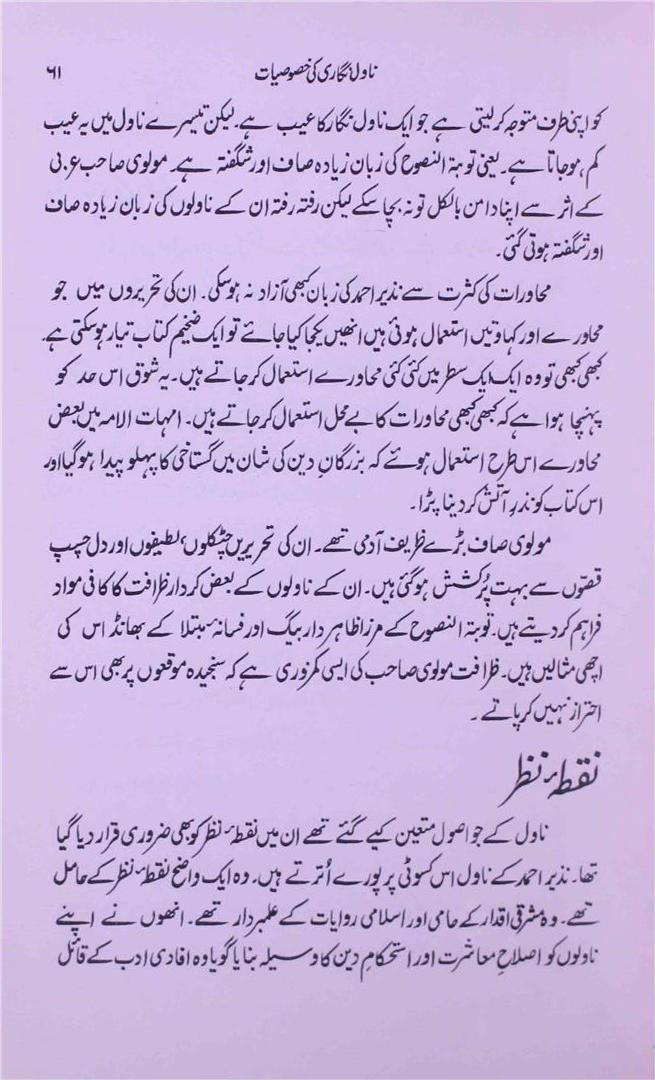 ناول نگاری کی خصوصیات ۶۱
کو اپنی طرف متوجہ کر لیتی ہے جو ایک ناول نگار کا عیب ہے۔ لیکن تیسرے ناول میں یہ عیب
کم ہو جاتا ہے۔ یعنی توبۃ النصوح کی زبان زیادہ صاف اور شگفتہ ہے۔ مولوی صاحب عربی
کے اثر سے اپنا دامن بالکل تو نہ بچا سکے لیکن رفتہ رفتہ ان کے ناولوں کی زبان زیادہ صاف
اور شگفتہ ہوتی گئی۔
محاورات کی کثرت سے نذیر احمد کی زبان کبھی آزاد نہ ہو سکی۔ ان کی تحریروں میں جو
محاورے اور کہاوتیں استعمال ہوئی ہیں انھیں یکجا کیا جائے تو ایک ضخیم کتاب تیار ہو سکتی ہے۔
کبھی کبھی تو وہ ایک ایک سطر میں کئی کئی محاورے استعمال کر جاتے ہیں۔ یہ شوق اس حد کو
پہنچا ہوا ہے کہ کبھی کبھی محاورات کا بے محل استعمال کر جاتے ہیں۔ امہات الامہ میں بعض
محاورے اس طرح استعمال ہوئے کہ بزرگانِ دین کی شان میں گستاخی کا پہلو پیدا ہو گیا اور
اس کتاب کو نذرِ آتش کر دینا پڑا۔
مولوی صاف بڑے ظریف آدمی تھے۔ ان کی تحریریں چٹکلوں، لطیفوں اور دل چسپ
قصّوں سے بہت پُرکشش ہو گئی ہیں۔ ان کے ناولوں کے بعض کردار ظرافت کا کافی مواد
فراہم کر دیتے ہیں۔ توبۃ النصوح کے مرزا ظاہر دار بیگ اور فسانۂ مبتلا کے بھانڈ اس کی
اچھی مثالیں ہیں۔ ظرافت مولوی صاحب کی ایسی کمزوری ہے کہ سنجیدہ موقعوں پر بھی اس سے
احتراز نہیں کر پاتے۔
نقطۂ نظر
ناول کے جو اصول متعین کیے گئے تھے ان میں نقطۂ نظر کو بھی ضروری قرار دیا گیا
تھا۔ نذیر احمد کے ناول اس کسوٹی پر پورے اُترتے ہیں۔ وہ ایک واضح نقطۂ نظر کے حامل
تھے۔ وہ مشرقی اقدار کے حامی اور اسلامی روایات کے علمبردار تھے۔ انھوں نے اپنے
ناولوں کو اصلاحِ معاشرت اور استحکامِ دین کا وسیلہ بنایا گویا وہ افادی ادب کے قائل